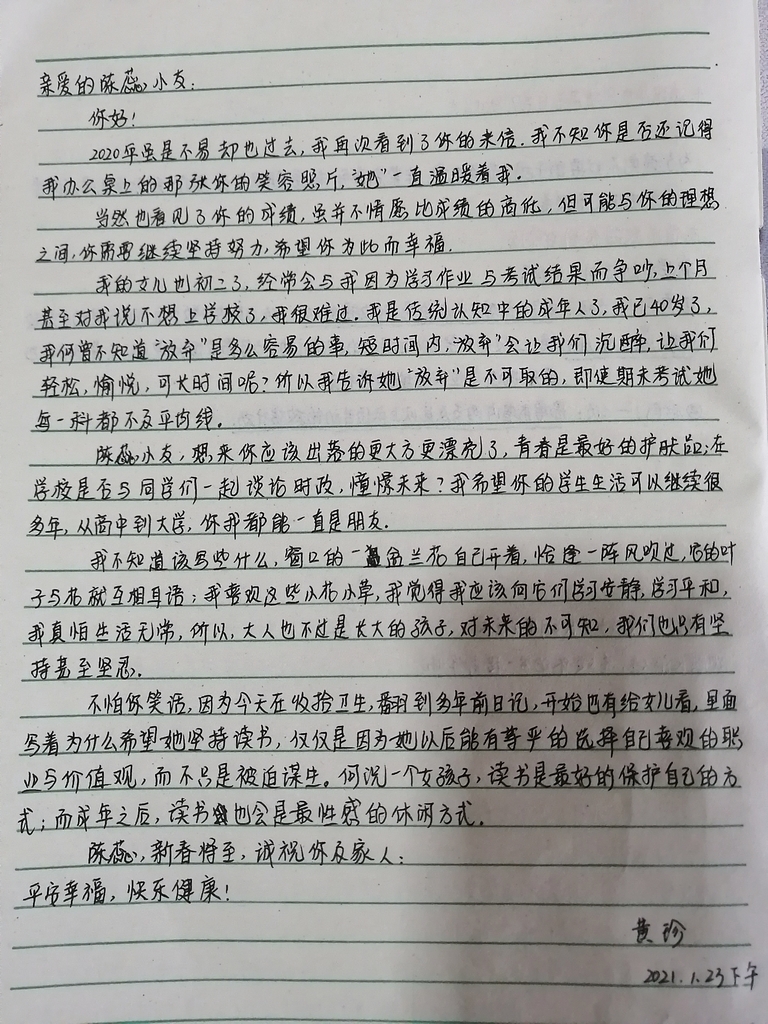 亲爱的陈蕊小友：
你好！
2020年虽是不易却也过去，我再次看到了你的来信。我不知你是否还记得
我办公桌上的那张你的笑容照片，“她”一直温暖着我。
当然也看见了你的成绩，虽并不情愿比成绩的高低，但可能与你的理想
之间，你需要继续坚持努力，希望你为此而幸福。
我的女儿也初二了，经常会与我因为学习作业与考试结果而争吵，上个月
甚至对我说不想上学校了，我很难过。我是传统认知中的成年人了，我已40岁了，
我何曾不知道“放弃”是多么容易的事，短时间内，“放弃”会让我们沉醉，让我们
轻松，愉悦，可长时间呢？所以我告诉她“放弃”是不可取的，即使期末考试她
每一科都不及平均线。
陈蕊小友，想来你应该出落的更大方更漂亮了，青春是最好的护肤品；在
学校是否与同学们一起谈论时政，憧憬未来？我希望你的学生生活可以继续很
多年，从高中到大学，你我都能一直是朋友。
我不知道该写些什么，窗口的一盆兰花自己开着，恰逢一阵风吹过，它的叶
子与花就互相耳语；我喜欢这些小花小草，我觉得我应该向它们学习安静，学习平和，
我真怕生活无常，所以，大人也不过是长大的孩子，对未来的不可知，我们也只有坚
持甚至坚忍。
不怕你笑话，因为今天在收拾卫生，翻到多年前日记，开始也有给女儿看，里面
写着为什么希望她坚持读书，仅仅是因为她以后能有尊严的选择自己喜欢的职
业与价值观，而不只是被迫谋生。何况一个女孩子，读书是最好的保护自己的方
式；而成年之后，读书也会是最性感的休闲方式。
陈蕊，新春将至，诚祝你及家人：
平安幸福，快乐健康！
黄珍
2021.1.23下午